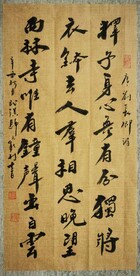 釋子身心無有分獨將
衣鉢去人羣相思晚望
西林寺唯有鐘聲出白雲